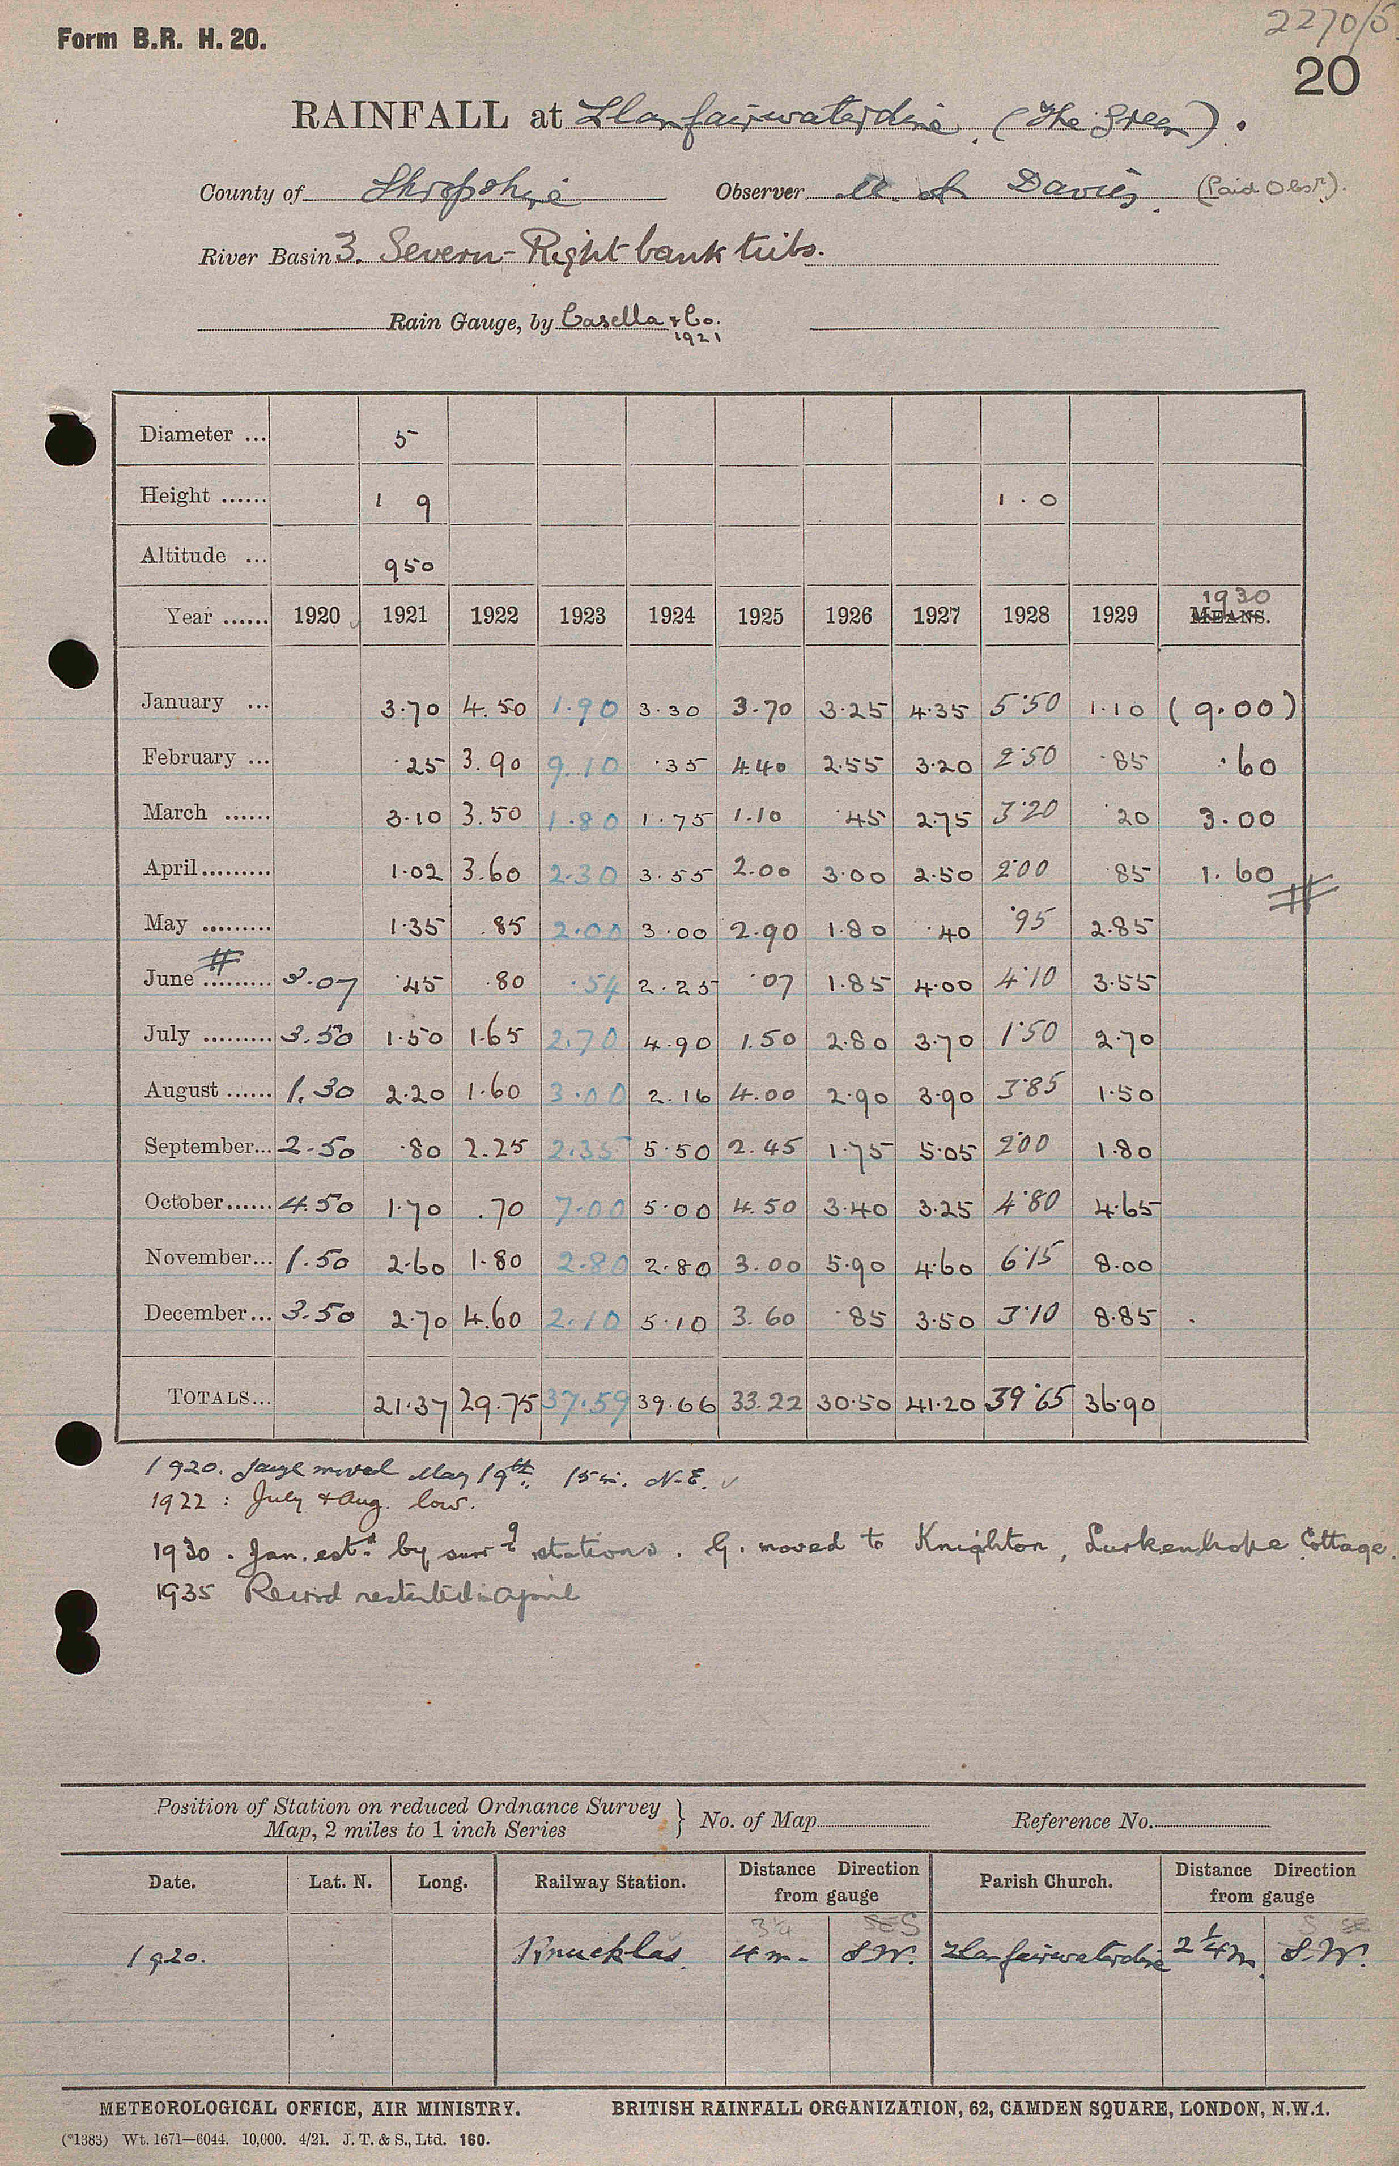 2270/5
Form B.R. H. 20.
20
RAINFALL at Llanfairwaterdine. (The Green).
County of Shropshire Observer Davies. (Paid Obsr.).
River Basin 3. Severn - Right bank tribs.
Rain Gauge, by Casella & Co.
1921
Diameter ... 5
Height ...... 1 9 1.0
Altitude ... 950
1930
Year ...... 1920 1921 1922 1923 1924 1925 1926 1927 1928 1929 MEANS.
January ... 3.70 4.50 1.90 3.30 3.70 3.25 4.35 5.50 1.10 (9.00)
February ... .25 3.90 9.10 .35 4.40 2.55 3.20 2.50 .85 .60
March ...... 3.10 3.50 1.80 1.75 1.10 .45 2.75 3.20 .20 3.00
April......... 1.02 3.60 2.30 3.55 2.00 3.00 2.50 2.00 .85 1.60 #
May ......... 1.35 .85 2.00 3.00 2.90 1.80 .40 .95 2.85
June #......... 3.07 .45 .80 .54 2.25 .07 1.85 4.00 4.10 3.55
July ......... 3.50 1.50 1.65 2.70 4.90 1.50 2.80 3.70 1.50 2.70
August ...... 1.30 2.20 1.60 3.00 2.16 4.00 2.90 3.90 3.85 1.50
September... 2.50 .80 2.25 2.35 5.50 2.45 1.75 5.05 2.00 1.80
October...... 4.50 1.70 .70 7.00 5.00 4.50 3.40 3.25 4.80 4.65
November... 1.50 2.60 1.80 2.80 2.80 3.00 5.90 4.60 6.15 8.00
December... 3.50 2.70 4.60 2.10 5.10 3.60 .85 3.50 3.10 8.85 .
TOTALS... 21.37 29.75 37.59 39.66 33.22 30.50 41.20 39.65 36.90
1920. Gauge moved May 19th. 15 N.E. ✓
1922 : July & Aug. low.
1930. Jan. estd. by surrg stations. G. moved to Knighton, Lurkenhope Cottage.
1935 Record restarted in April
Position of Station on reduced Ordnance Survey
Map, 2 miles to 1 inch Series } No. of Map Reference No.
Date. Lat. N. Long. Railway Station. Distance Direction from gauge Parish Church. Distance Direction from gauge
3¼ SES S SE
1920. Knucklas. 4 m. S.W. Llanfairwaterdine 2¼ m. S.W.
METEOROLOGICAL OFFICE, AIR MINISTRY. BRITISH RAINFALL ORGANIZATION, 62, CAMDEN SQUARE, LONDON, N.W.1.
(*1383) Wt. 1671—6044. 10,000. 4/21. J. T. & S., Ltd. 160.